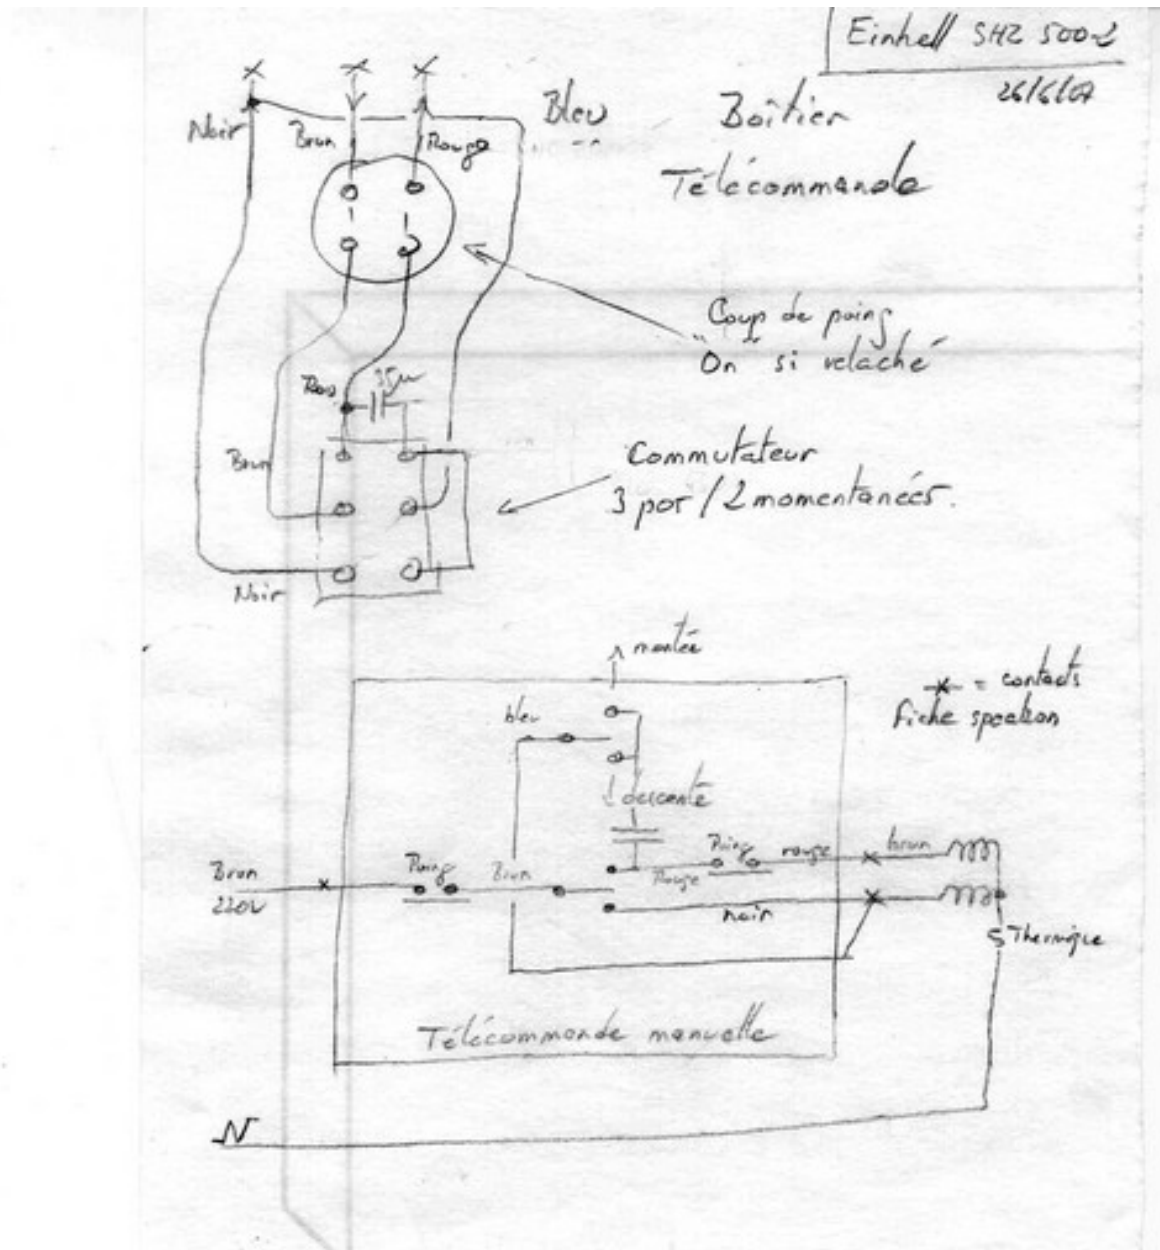 Einhell SHZ 500-2
26/6/07
Boîtier
Télécommande
Noir
Brun
Rouge
Bleu
Coup de poing
"On" si relaché
35µ
Brun
Commutateur
3 pos / 2 momentanées.
Noir
montée
bleu
descente
x = contacts
fiche speakon
Brun
220V
Poing
Brun
Rouge
Poing
rouge
brun
noir
Thermique
Télécommande manuelle
N